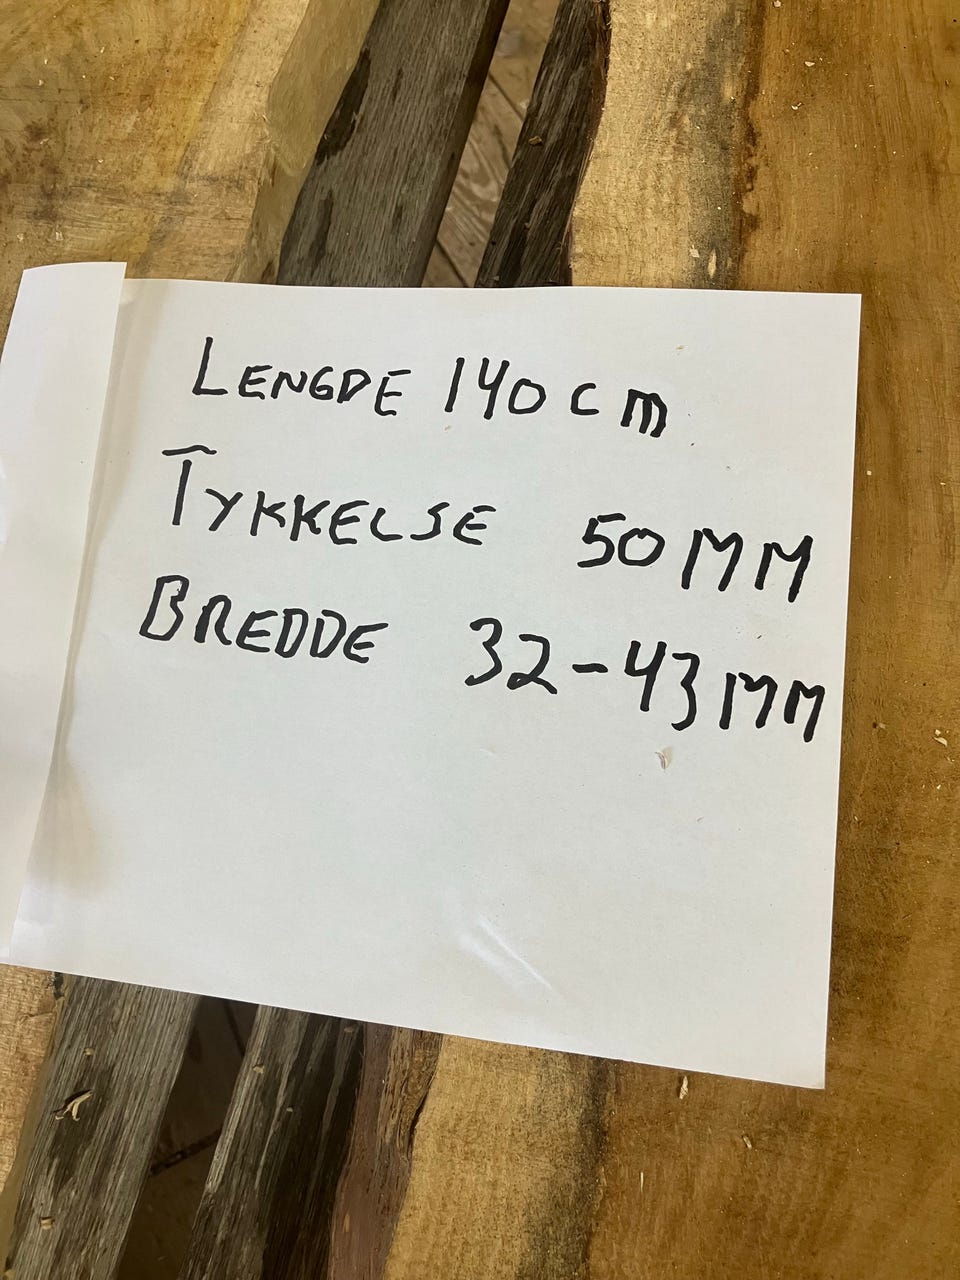 LENGDE 140 cm
TYKKELSE 50 MM
BREDDE 32-43 MM